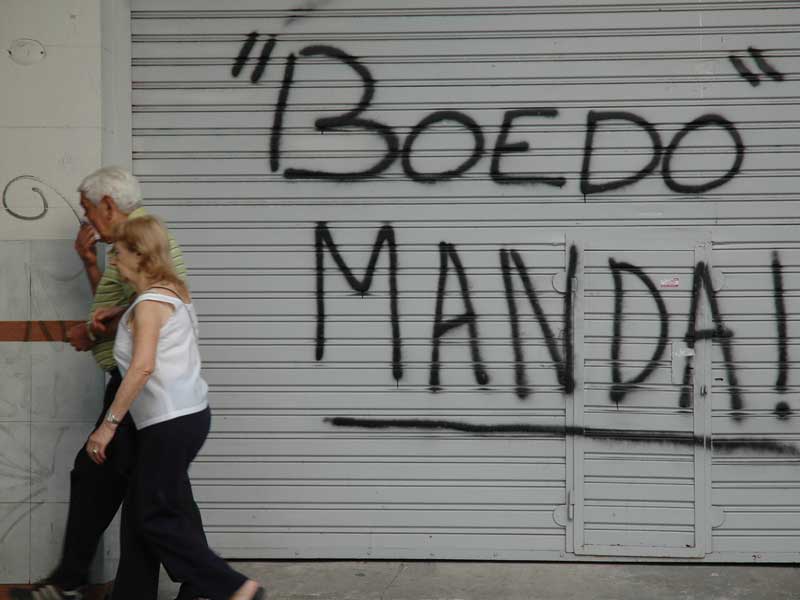 "BOEDO"
MANDA!